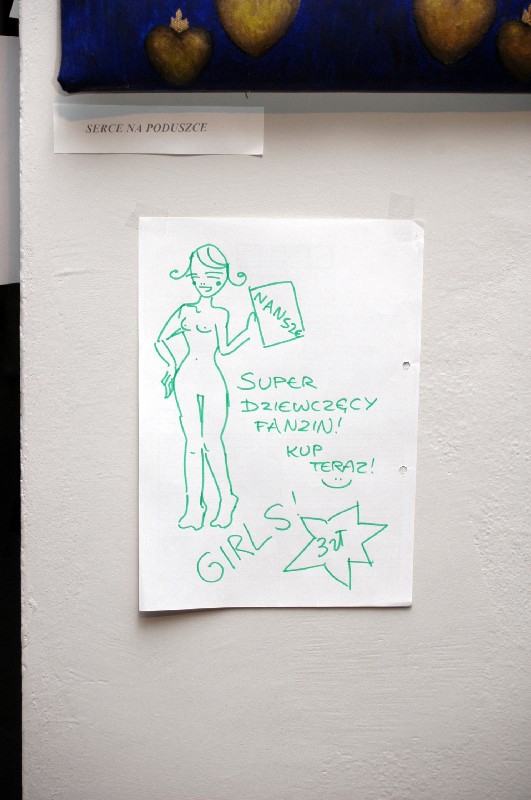 SERCE NA PODUSZCE
NANSZE
SUPER
DZIEWCZĘCY
FANZIN!
KUP
TERAZ!
GIRLS!
3zł